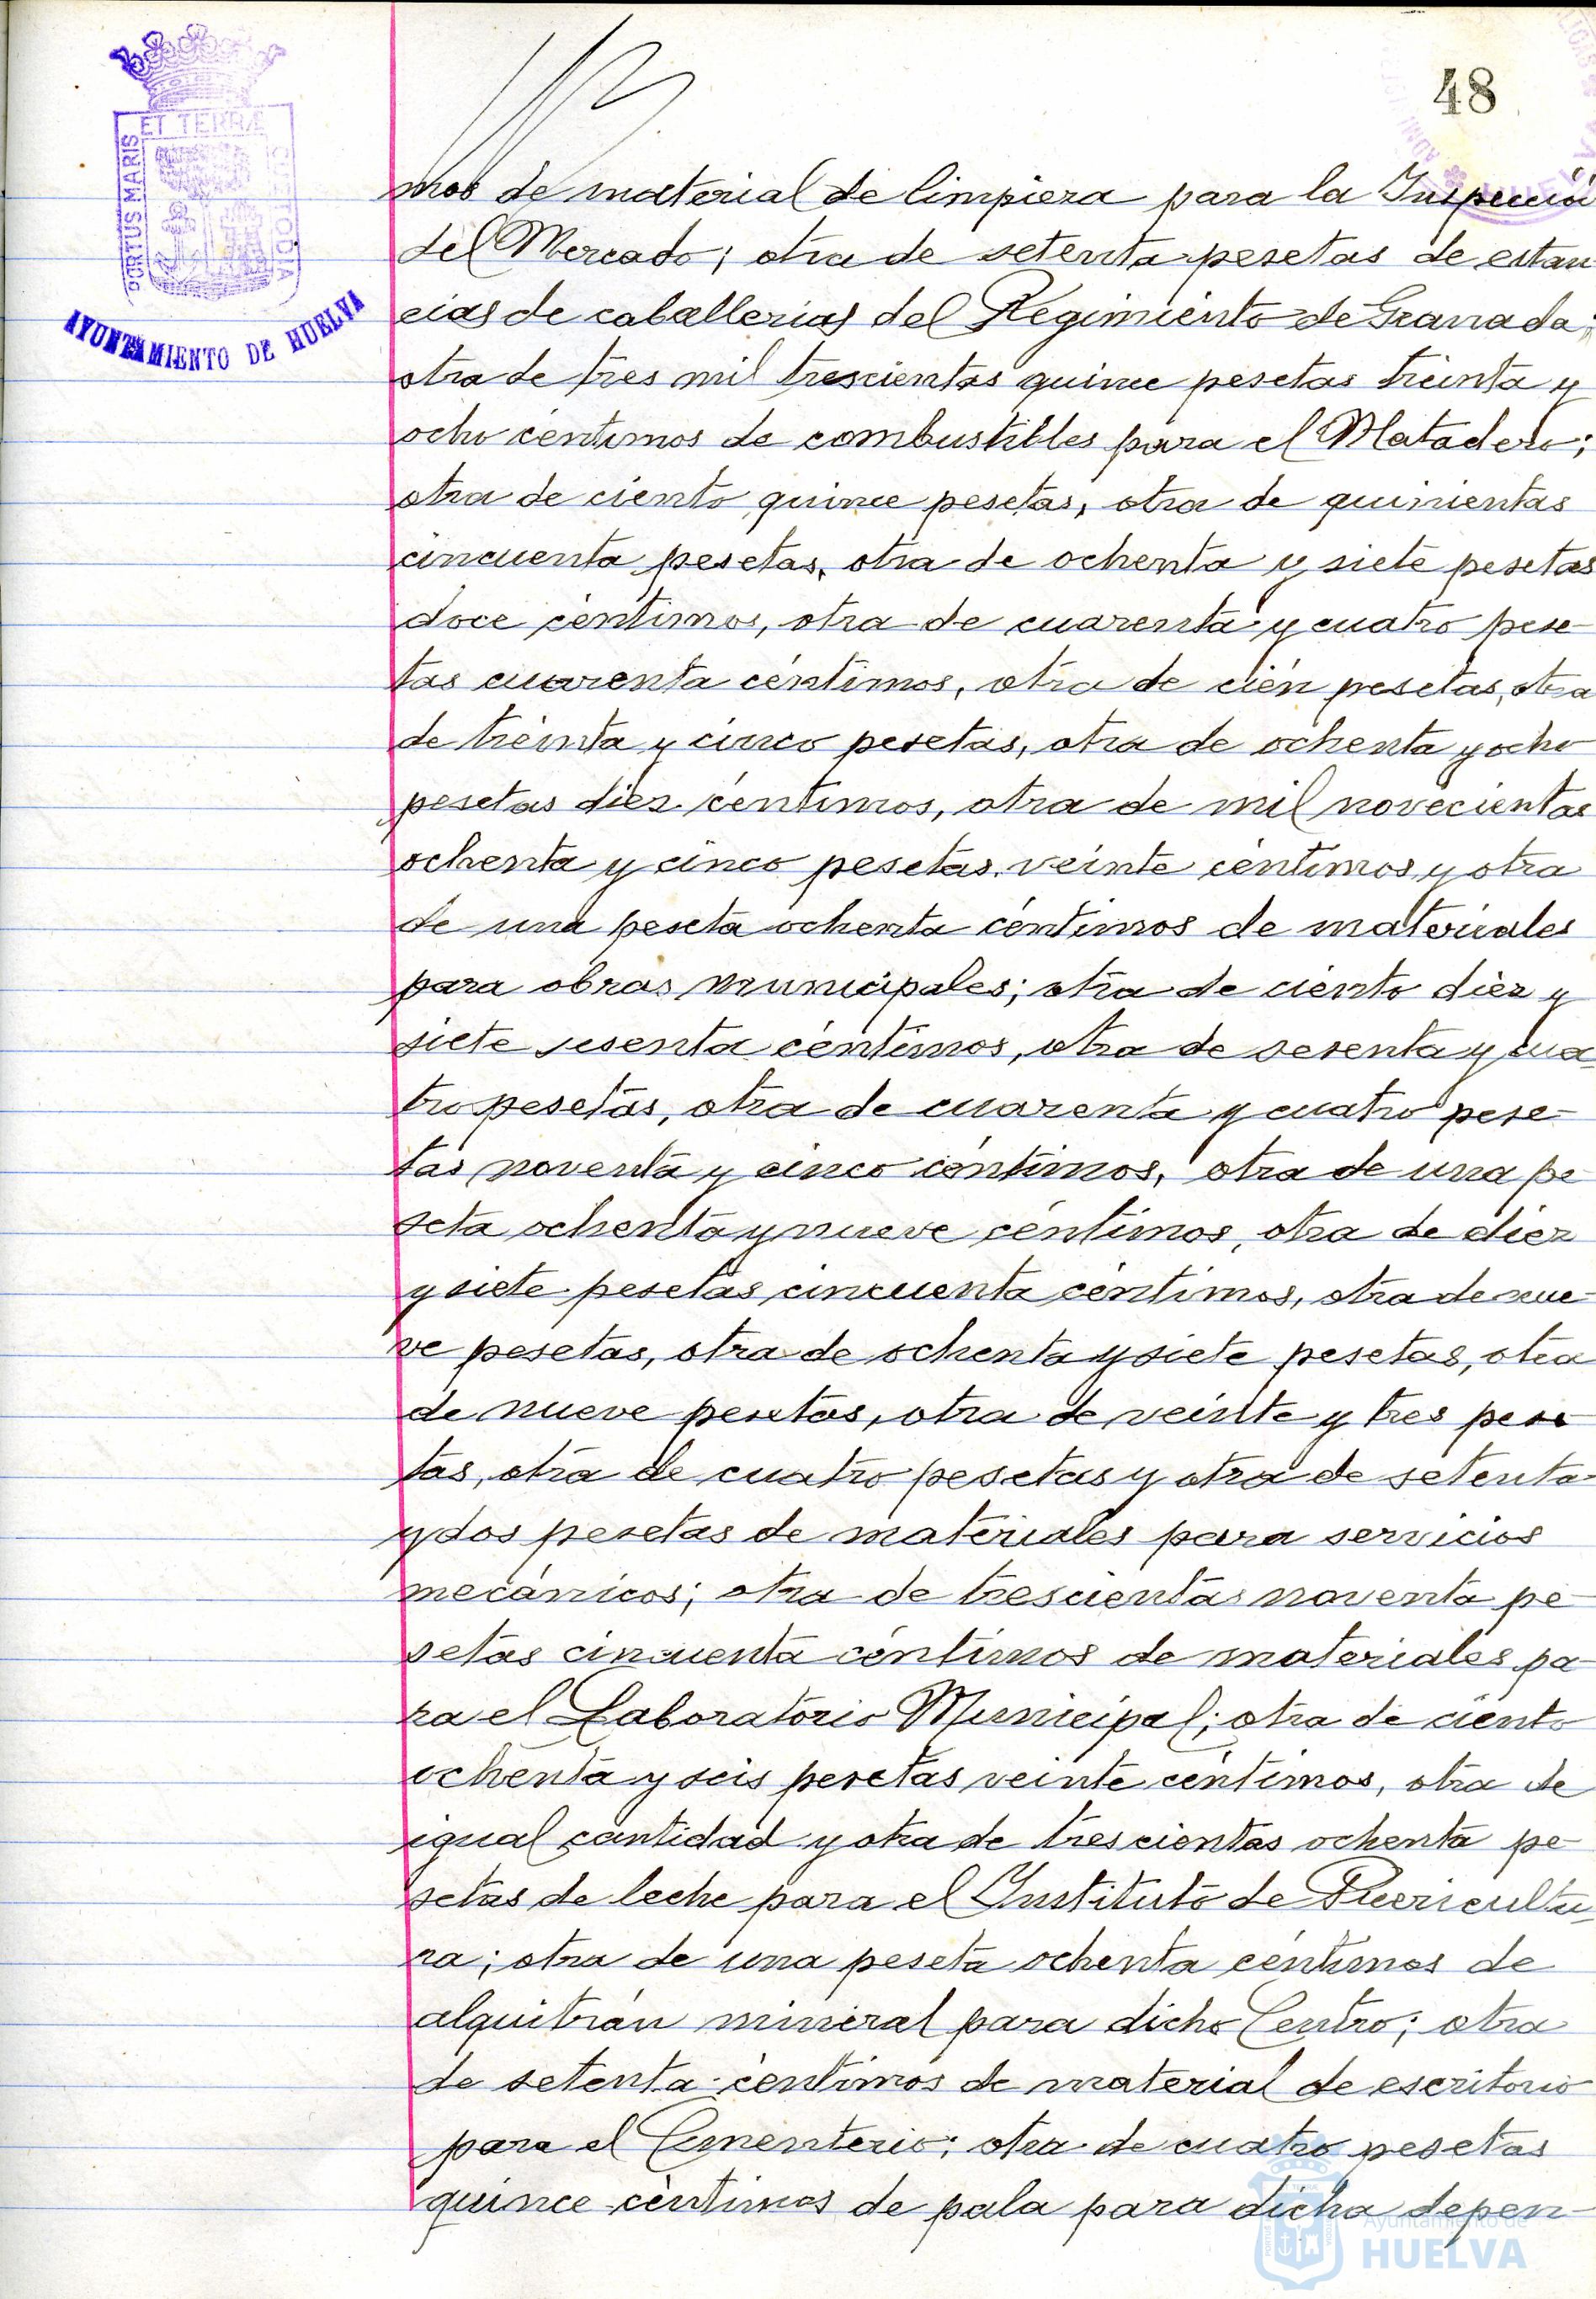 48
ET TERRÆ
PORTUS MARIS
CUSTODIA
AYUNTAMIENTO DE HUELVA
mos de material de limpieza para la Inspección
del Mercado; otra de setenta pesetas de estan
cias de caballerias del Regimiento de Granada;
otra de tres mil trescientas quince pesetas treinta y
ocho céntimos de combustibles para el Matadero;
otra de ciento quince pesetas, otra de quinientas
cincuenta pesetas, otra de ochenta y siete pesetas
doce céntimos, otra de cuarenta y cuatro pese-
tas cuarenta céntimos, otra de cién pesetas, otra
de treinta y cinco pesetas, otra de ochenta y ocho
pesetas diez céntimos, otra de mil novecientas
ochenta y cinco pesetas veinte céntimos y otra
de una peseta ochenta céntimos de materiales
para obras municipales; otra de ciento diez y
siete sesenta céntimos, otra de sesenta y cua-
tro pesetas, otra de cuarenta y cuatro pese-
tas noventa y cinco céntimos, otra de una pe
seta ochenta y nueve céntimos, otra de diez
y siete pesetas cincuenta céntimos, otra de nue-
ve pesetas, otra de ochenta y siete pesetas, otra
de nueve pesetas, otra de veinte y tres pese
tas, otra de cuatro pesetas y otra de setenta
y dos pesetas de materiales para servicios
mecánicos; otra de trescientas noventa pe-
setas cincuenta céntimos de materiales pa-
ra el Laboratorio Municipal; otra de ciento
ochenta y seis pesetas veinte céntimos, otra de
igual cantidad y otra de trescientas ochenta pe-
setas de leche para el Instituto de Puericultu-
ra; otra de una peseta ochenta céntimos de
alquitrán mineral para dicho Centro; otra
de setenta céntimos de material de escritorio
para el Cementerio; otra de cuatro pesetas
quince céntimos de pala para dicha depen-
Ayuntamiento de
HUELVA